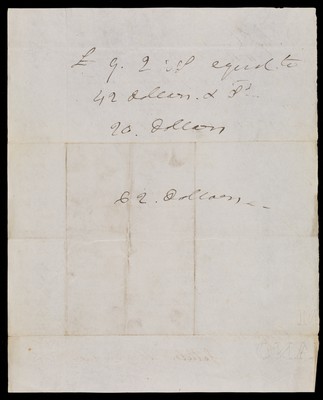 £ 9. 2 equal to
42 Dollars. &
20. Dollars
62. Dollars